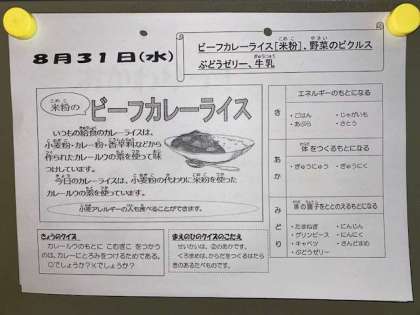 8月31日(水)
ビーフカレーライス[米粉]、野菜のピクルス
ぶどうゼリー、牛乳
米粉の
ビーフカレーライス
いつもの給食のカレーライスは、
小麦粉・カレー粉・香辛料などから
作られたカレールウの素を使って味
つけしています。
今日のカレーライスは、小麦粉の代わりに米粉を使った
カレールウの素を使っています。
小麦アレルギーの人も食べることができます。
きょうのクイズ
カレールウのもとに こむぎこ をつかう
のは、カレーにとろみをつけるためである。
○でしょうか?×でしょうか?
まえのひのクイズのこたえ
せいかいは、②のあかです。
くろまめは、からだをつくるはたら
きのあるたべものです。
き
エネルギーのもとになる
・ごはん ・じゃがいも
・あぶら ・さとう
あか
体をつくるもとになる
・ぎゅうにゅう ・ぎゅうにく
みどり
体の調子をととのえるもとになる
・たまねぎ ・にんじん
・グリンピース ・にんにく
・キャベツ
・ぶどうゼリー